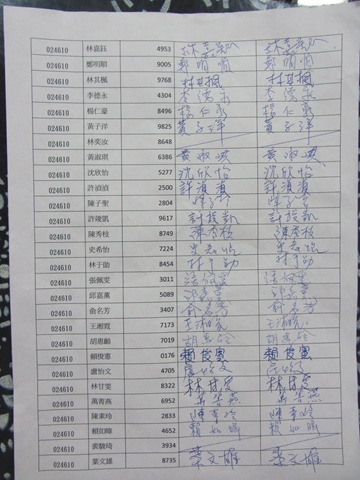 024610 林嘉鈺 4953 林嘉鈺 林嘉鈺
024610 鄭明順 9005 鄭明順 鄭明順
024610 林其楓 9768 林其楓 林其楓
024610 李德永 4304 李德永 李德永
024610 楊仁豪 8496 楊仁豪 楊仁豪
024610 黃子洋 9825 黃子洋 黃子洋
024610 林奕汝 8648
024610 黃淑琪 6386 黃淑琪 黃淑琪
024610 沈欣怡 5277 沈欣怡 沈欣怡
024610 許湞湞 2500 許湞湞 許湞湞
024610 陳子聖 2804 陳子聖 陳子聖
024610 許竣凱 9617 許竣凱 許竣凱
024610 陳秀枝 8749 陳秀枝 陳秀枝
024610 史希怡 7224 史希怡 史希怡
024610 林于勛 8454 林于勛 林于勛
024610 張佩雯 3011
024610 邱嘉薰 5089
024610 俞名芳 3407 俞名芳 俞名芳
024610 王湘霞 7173
024610 胡惠齡 7019
024610 賴俊憲 0176 賴俊憲 賴俊憲
024610 盧怡文 4705
024610 林甘雯 8322 林甘雯 林甘雯
024610 萬菁燕 6952
024610 陳素玲 2833
024610 賴如晴 4652
024610 裴駿琦 3934
024610 葉文雄 8735 葉文雄 葉文雄